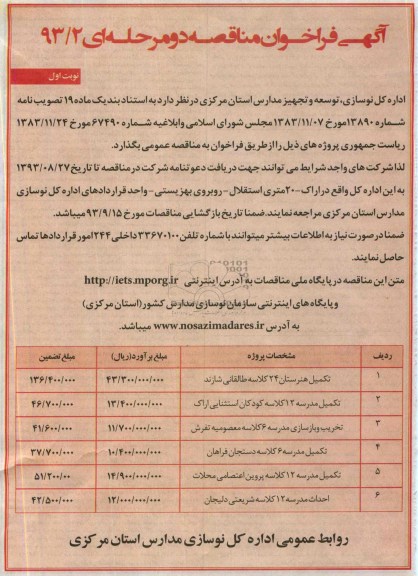 آگهی فراخوان مناقصه دو مرحله ای ۹۳/۲
نوبت اول
اداره کل نوسازی، توسعه و تجهیز مدارس استان مرکزی در نظر دارد به استناد بند یک ماده ۱۹ تصویب نامه
شماره ۱۳۸۹۰ مورخ ۱۳۸۳/۱۱/۰۷ مجلس شورای اسلامی و ابلاغیه شماره ۶۷۴۹۰ مورخ ۱۳۸۳/۱۱/۲۴
ریاست جمهوری پروژه های ذیل را از طریق فراخوان به مناقصه عمومی بگذارد.
لذا شرکت های واجد شرایط می توانند جهت دریافت دعوتنامه شرکت در مناقصه تا تاریخ ۱۳۹۳/۰۸/۲۷
به این اداره کل واقع در اراک - ۲۰متری استقلال - روبروی بهزیستی - واحد قراردادهای اداره کل نوسازی
مدارس استان مرکزی مراجعه نمایند. ضمنا تاریخ بازگشایی مناقصات مورخ ۹۳/۹/۱۵ میباشد.
ضمنا در صورت نیاز به اطلاعات بیشتر میتوانند با شماره تلفن ۳۳۶۷۰۱۰۰ داخلی ۲۴۴ امور قراردادها تماس
حاصل نمایند.
متن این مناقصه در پایگاه ملی مناقصات به آدرس اینترنتی http://iets.mporg.ir
و پایگاه های اینترنتی سازمان نوسازی مدارس کشور (استان مرکزی)
به آدرس www.nosazimadares.ir میباشد.
ردیف مشخصات پروژه مبلغ برآورد(ریال) مبلغ تضمین
۱ تکمیل هنرستان ۲۴ کلاسه طالقانی شازند ۴۳/۳۰۰/۰۰۰/۰۰۰ ۱۳۶/۴۰۰/۰۰۰
۲ تکمیل مدرسه ۱۲ کلاسه کودکان استثنایی اراک ۱۳/۴۰۰/۰۰۰/۰۰۰ ۴۶/۷۰۰/۰۰۰
۳ تخریب و بازسازی مدرسه ۶ کلاسه معصومیه تفرش ۱۱/۷۰۰/۰۰۰/۰۰۰ ۴۱/۶۰۰/۰۰۰
۴ تکمیل مدرسه ۶ کلاسه دستجان فراهان ۱۰/۴۰۰/۰۰۰/۰۰۰ ۳۷/۷۰۰/۰۰۰
۵ تکمیل مدرسه ۱۲ کلاسه پروین اعتصامی محلات ۱۴/۹۰۰/۰۰۰/۰۰۰ ۵۱/۲۰۰/۰۰
۶ احداث مدرسه ۱۲ کلاسه شریعتی دلیجان ۱۲/۰۰۰/۰۰۰/۰۰۰ ۴۲/۵۰۰/۰۰۰
روابط عمومی اداره کل نوسازی مدارس استان مرکزی